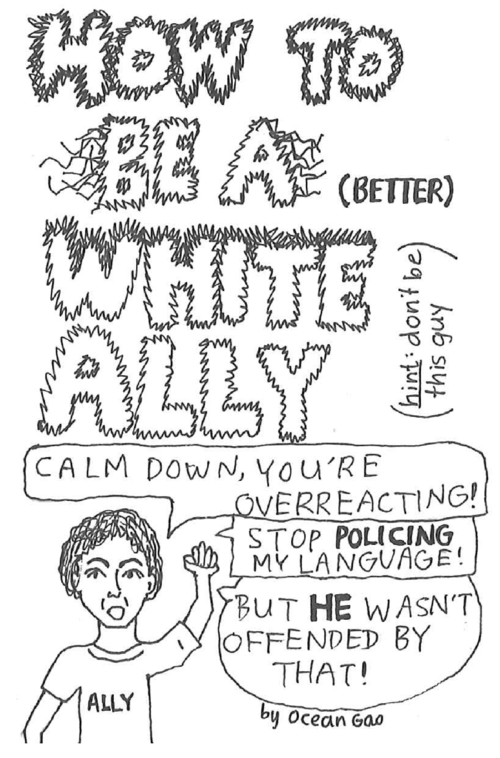 HOW TO
BE A (BETTER)
WHITE
ALLY
(hint: don't be
this guy)
CALM DOWN, YOU'RE
OVERREACTING!
STOP POLICING
MY LANGUAGE!
BUT HE WASN'T
OFFENDED BY
THAT!
ALLY
by Ocean Gao